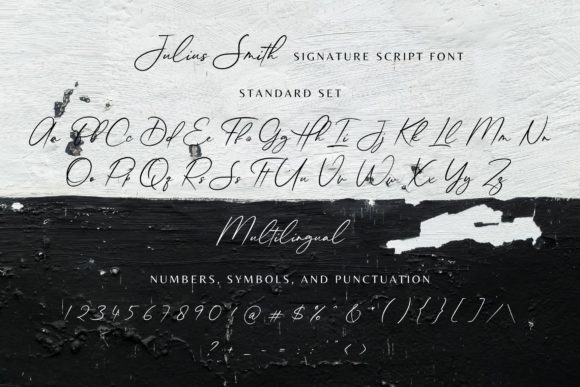 Julius Smith SIGNATURE SCRIPT FONT
STANDARD SET
Aa Bb Cc Dd Ee Ff Gg Hh Ii Jj Kk Ll Mm Nn
Oo Pp Qq Rr Ss Tt Uu Vv Ww Xx Yy Zz
Multilingual
NUMBERS, SYMBOLS, AND PUNCTUATION
1234567890!@#$%^&*(){}[]/\